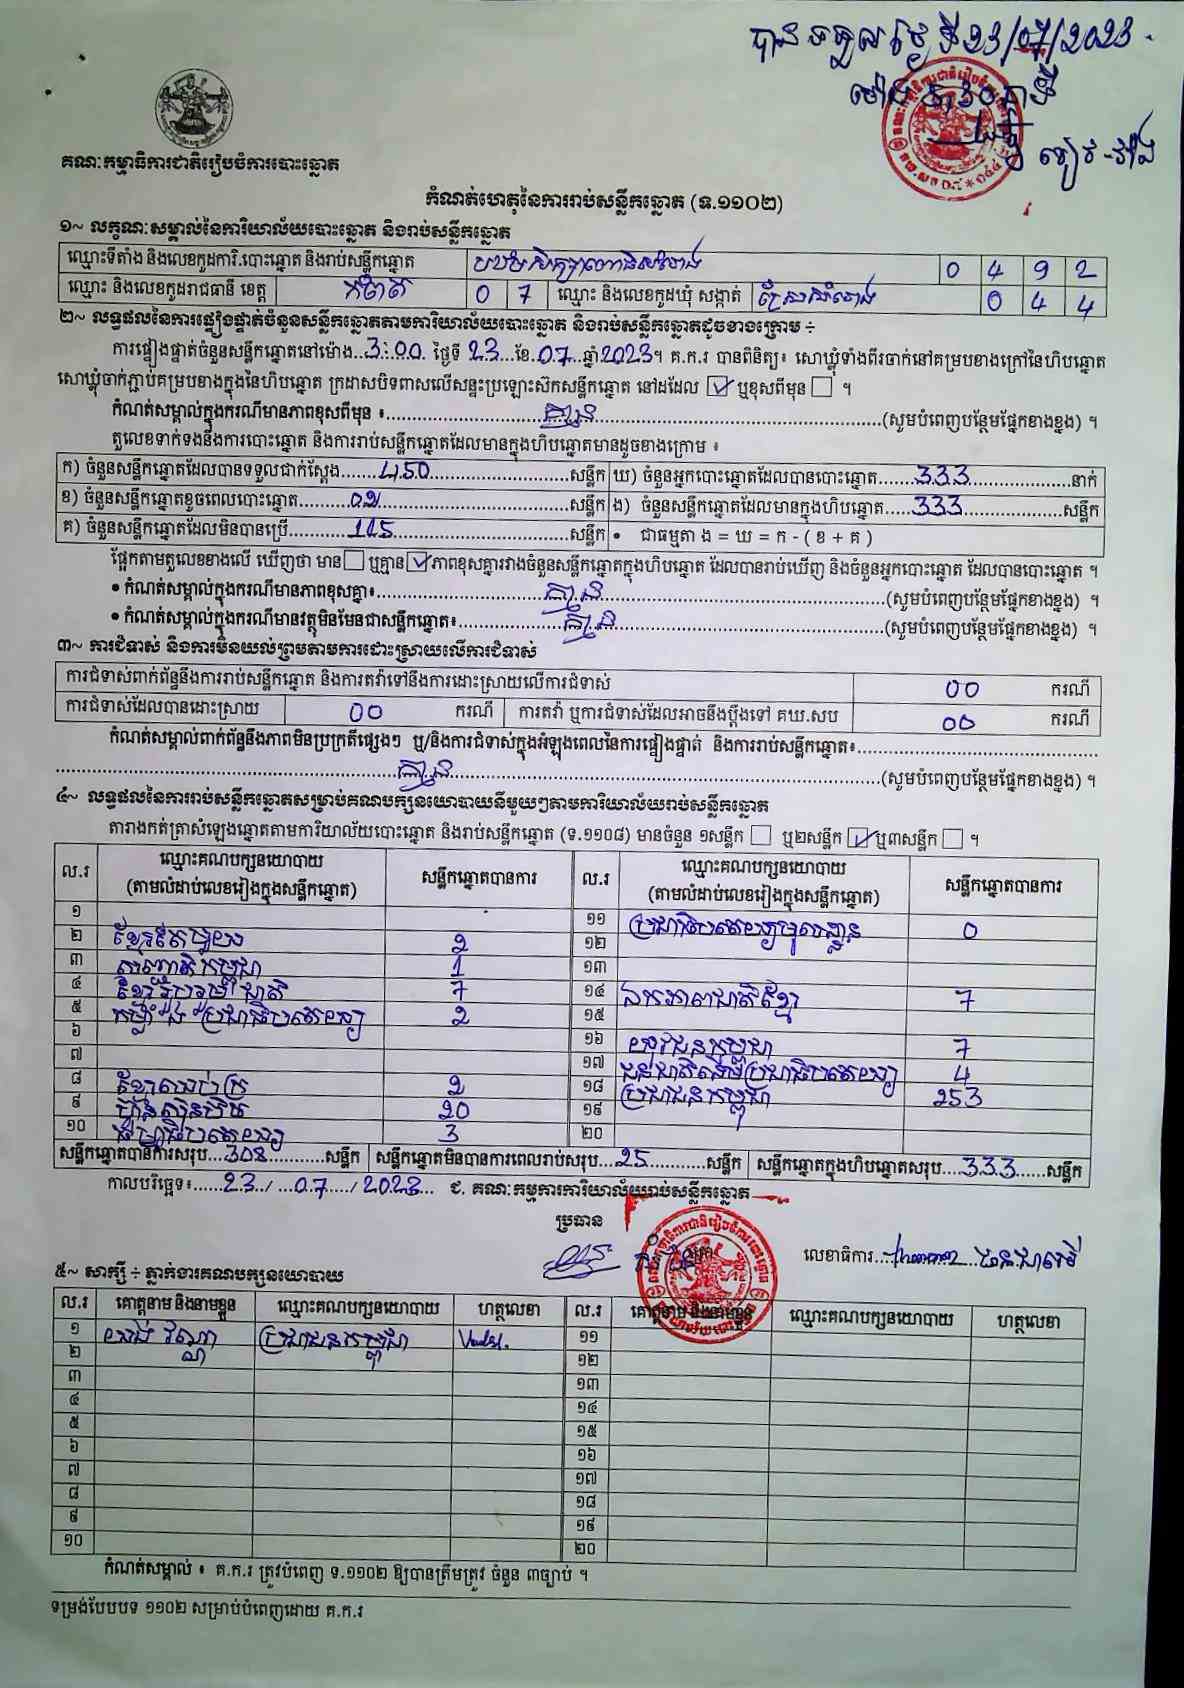 បានទទួលថ្ងៃទី23/07/2023.
គណៈកម្មាធិការជាតិរៀបចំការបោះឆ្នោត
កំណត់ហេតុនៃការរាប់សន្លឹកឆ្នោត (ទ.១១០២)
១~ លក្ខណៈសម្គាល់នៃការិយាល័យបោះឆ្នោត និងរាប់សន្លឹកឆ្នោត
ឈ្មោះទីតាំង និងលេខកូដការិ.បោះឆ្នោត និងរាប់សន្លឹកឆ្នោត 0 4 9 2
ឈ្មោះ និងលេខកូដរាជធានី ខេត្ត កំពត 0 7 ឈ្មោះ និងលេខកូដឃុំ សង្កាត់ 0 4 4
២~ លទ្ធផលនៃការផ្ទៀងផ្ទាត់ចំនួនសន្លឹកឆ្នោតតាមការិយាល័យបោះឆ្នោត និងរាប់សន្លឹកឆ្នោតដូចខាងក្រោម ÷
ការផ្ទៀងផ្ទាត់ចំនួនសន្លឹកឆ្នោតនៅម៉ោង..3:00. ថ្ងៃទី 23 ខែ.07..ឆ្នាំ2023។ គ.ក.រ បានពិនិត្យ៖ សោឃ្លុំទាំងពីរចាក់នៅគម្របខាងក្រៅនៃហិបឆ្នោត
សោឃ្លុំចាក់ភ្ជាប់គម្របខាងក្នុងនៃហិបឆ្នោត ក្រដាសបិទពាសលើសន្ទះប្រឡោះស៊កសន្លឹកឆ្នោត នៅដដែល ☑ ឬខុសពីមុន ☐ ។
កំណត់សម្គាល់ក្នុងករណីមានភាពខុសពីមុន ៖ គ្មាន (សូមបំពេញបន្ថែមផ្នែកខាងខ្នង) ។
តួលេខទាក់ទងនឹងការបោះឆ្នោត និងការរាប់សន្លឹកឆ្នោតដែលមានក្នុងហិបឆ្នោតមានដូចខាងក្រោម ៖
ក) ចំនួនសន្លឹកឆ្នោតដែលបានទទួលជាក់ស្តែង 450 សន្លឹក ឃ) ចំនួនអ្នកបោះឆ្នោតដែលបានបោះឆ្នោត 333 នាក់
ខ) ចំនួនសន្លឹកឆ្នោតខូចពេលបោះឆ្នោត 02 សន្លឹក ង) ចំនួនសន្លឹកឆ្នោតដែលមានក្នុងហិបឆ្នោត 333 សន្លឹក
គ) ចំនួនសន្លឹកឆ្នោតដែលមិនបានប្រើ 115 សន្លឹក • ជាធម្មតា ង = ឃ = ក - ( ខ + គ )
ផ្អែកតាមតួលេខខាងលើ ឃើញថា មាន ☐ ឬគ្មាន ☑ ភាពខុសគ្នារវាងចំនួនសន្លឹកឆ្នោតក្នុងហិបឆ្នោត ដែលបានរាប់ឃើញ និងចំនួនអ្នកបោះឆ្នោត ដែលបានបោះឆ្នោត ។
• កំណត់សម្គាល់ក្នុងករណីមានភាពខុសគ្នា៖ គ្មាន (សូមបំពេញបន្ថែមផ្នែកខាងខ្នង) ។
• កំណត់សម្គាល់ក្នុងករណីមានវត្ថុមិនមែនជាសន្លឹកឆ្នោត៖ គ្មាន (សូមបំពេញបន្ថែមផ្នែកខាងខ្នង) ។
៣~ ការជំទាស់ និងការមិនយល់ព្រមតាមការដោះស្រាយលើការជំទាស់
ការជំទាស់ពាក់ព័ន្ធនឹងការរាប់សន្លឹកឆ្នោត និងការតវ៉ាទៅនឹងការដោះស្រាយលើការជំទាស់ 00 ករណី
ការជំទាស់ដែលបានដោះស្រាយ 00 ករណី ការតវ៉ា ឬការជំទាស់ដែលអាចនឹងប្តឹងទៅ គឃ.សប 00 ករណី
កំណត់សម្គាល់ពាក់ព័ន្ធនឹងភាពមិនប្រក្រតីផ្សេងៗ ឬ/និងការជំទាស់ក្នុងអំឡុងពេលនៃការផ្ទៀងផ្ទាត់ និងការរាប់សន្លឹកឆ្នោត៖
គ្មាន (សូមបំពេញបន្ថែមផ្នែកខាងខ្នង) ។
៤~ លទ្ធផលនៃការរាប់សន្លឹកឆ្នោតសម្រាប់គណបក្សនយោបាយនីមួយៗតាមការិយាល័យរាប់សន្លឹកឆ្នោត
តារាងកត់ត្រាសំឡេងឆ្នោតតាមការិយាល័យបោះឆ្នោត និងរាប់សន្លឹកឆ្នោត (ទ.១១០៨) មានចំនួន ១សន្លឹក ☐ ឬ២សន្លឹក ☑ ឬ៣សន្លឹក ☐ ។
ល.រ ឈ្មោះគណបក្សនយោបាយ (តាមលំដាប់លេខរៀងក្នុងសន្លឹកឆ្នោត) សន្លឹកឆ្នោតបានការ ល.រ ឈ្មោះគណបក្សនយោបាយ (តាមលំដាប់លេខរៀងក្នុងសន្លឹកឆ្នោត) សន្លឹកឆ្នោតបានការ
១ ១១ ប្រជាធិបតេយ្យមូលដ្ឋាន 0
២ ខ្មែរតែមួយ 2 ១២
៣ សញ្ជាតិកម្ពុជា 1 ១៣
៤ ខ្មែររួបរួមជាតិ 7 ១៤ ឯកភាពជាតិខ្មែរ 7
៥ កម្លាំងប្រជាធិបតេយ្យ 2 ១៥
៦ ១៦ យុវជនកម្ពុជា 7
៧ ១៧ ជនជាតិដើមប្រជាធិបតេយ្យ 4
៨ ខ្មែរឈប់ក្រ 2 ១៨ ប្រជាជនកម្ពុជា 253
៩ ហ្វ៊ុនស៊ិនប៉ិច 20 ១៩
១០ ធម្មាធិបតេយ្យ 3 ២០
សន្លឹកឆ្នោតបានការសរុប 308 សន្លឹក សន្លឹកឆ្នោតមិនបានការពេលរាប់សរុប 25 សន្លឹក សន្លឹកឆ្នោតក្នុងហិបឆ្នោតសរុប 333 សន្លឹក
កាលបរិច្ឆេទ៖ 23 / 07 / 2023 ជ. គណៈកម្មការការិយាល័យរាប់សន្លឹកឆ្នោត
ប្រធាន
លេខាធិការ
៥~ សាក្សី ÷ ភ្នាក់ងារគណបក្សនយោបាយ
ល.រ គោត្តនាម និងនាមខ្លួន ឈ្មោះគណបក្សនយោបាយ ហត្ថលេខា ល.រ គោត្តនាម និងនាមខ្លួន ឈ្មោះគណបក្សនយោបាយ ហត្ថលេខា
១ ប្រជាជនកម្ពុជា ១១
២ ១២
៣ ១៣
៤ ១៤
៥ ១៥
៦ ១៦
៧ ១៧
៨ ១៨
៩ ១៩
១០ ២០
កំណត់សម្គាល់ ៖ គ.ក.រ ត្រូវបំពេញ ទ.១១០២ ឱ្យបានត្រឹមត្រូវ ចំនួន ៣ច្បាប់ ។
ទម្រង់បែបបទ ១១០២ សម្រាប់បំពេញដោយ គ.ក.រ